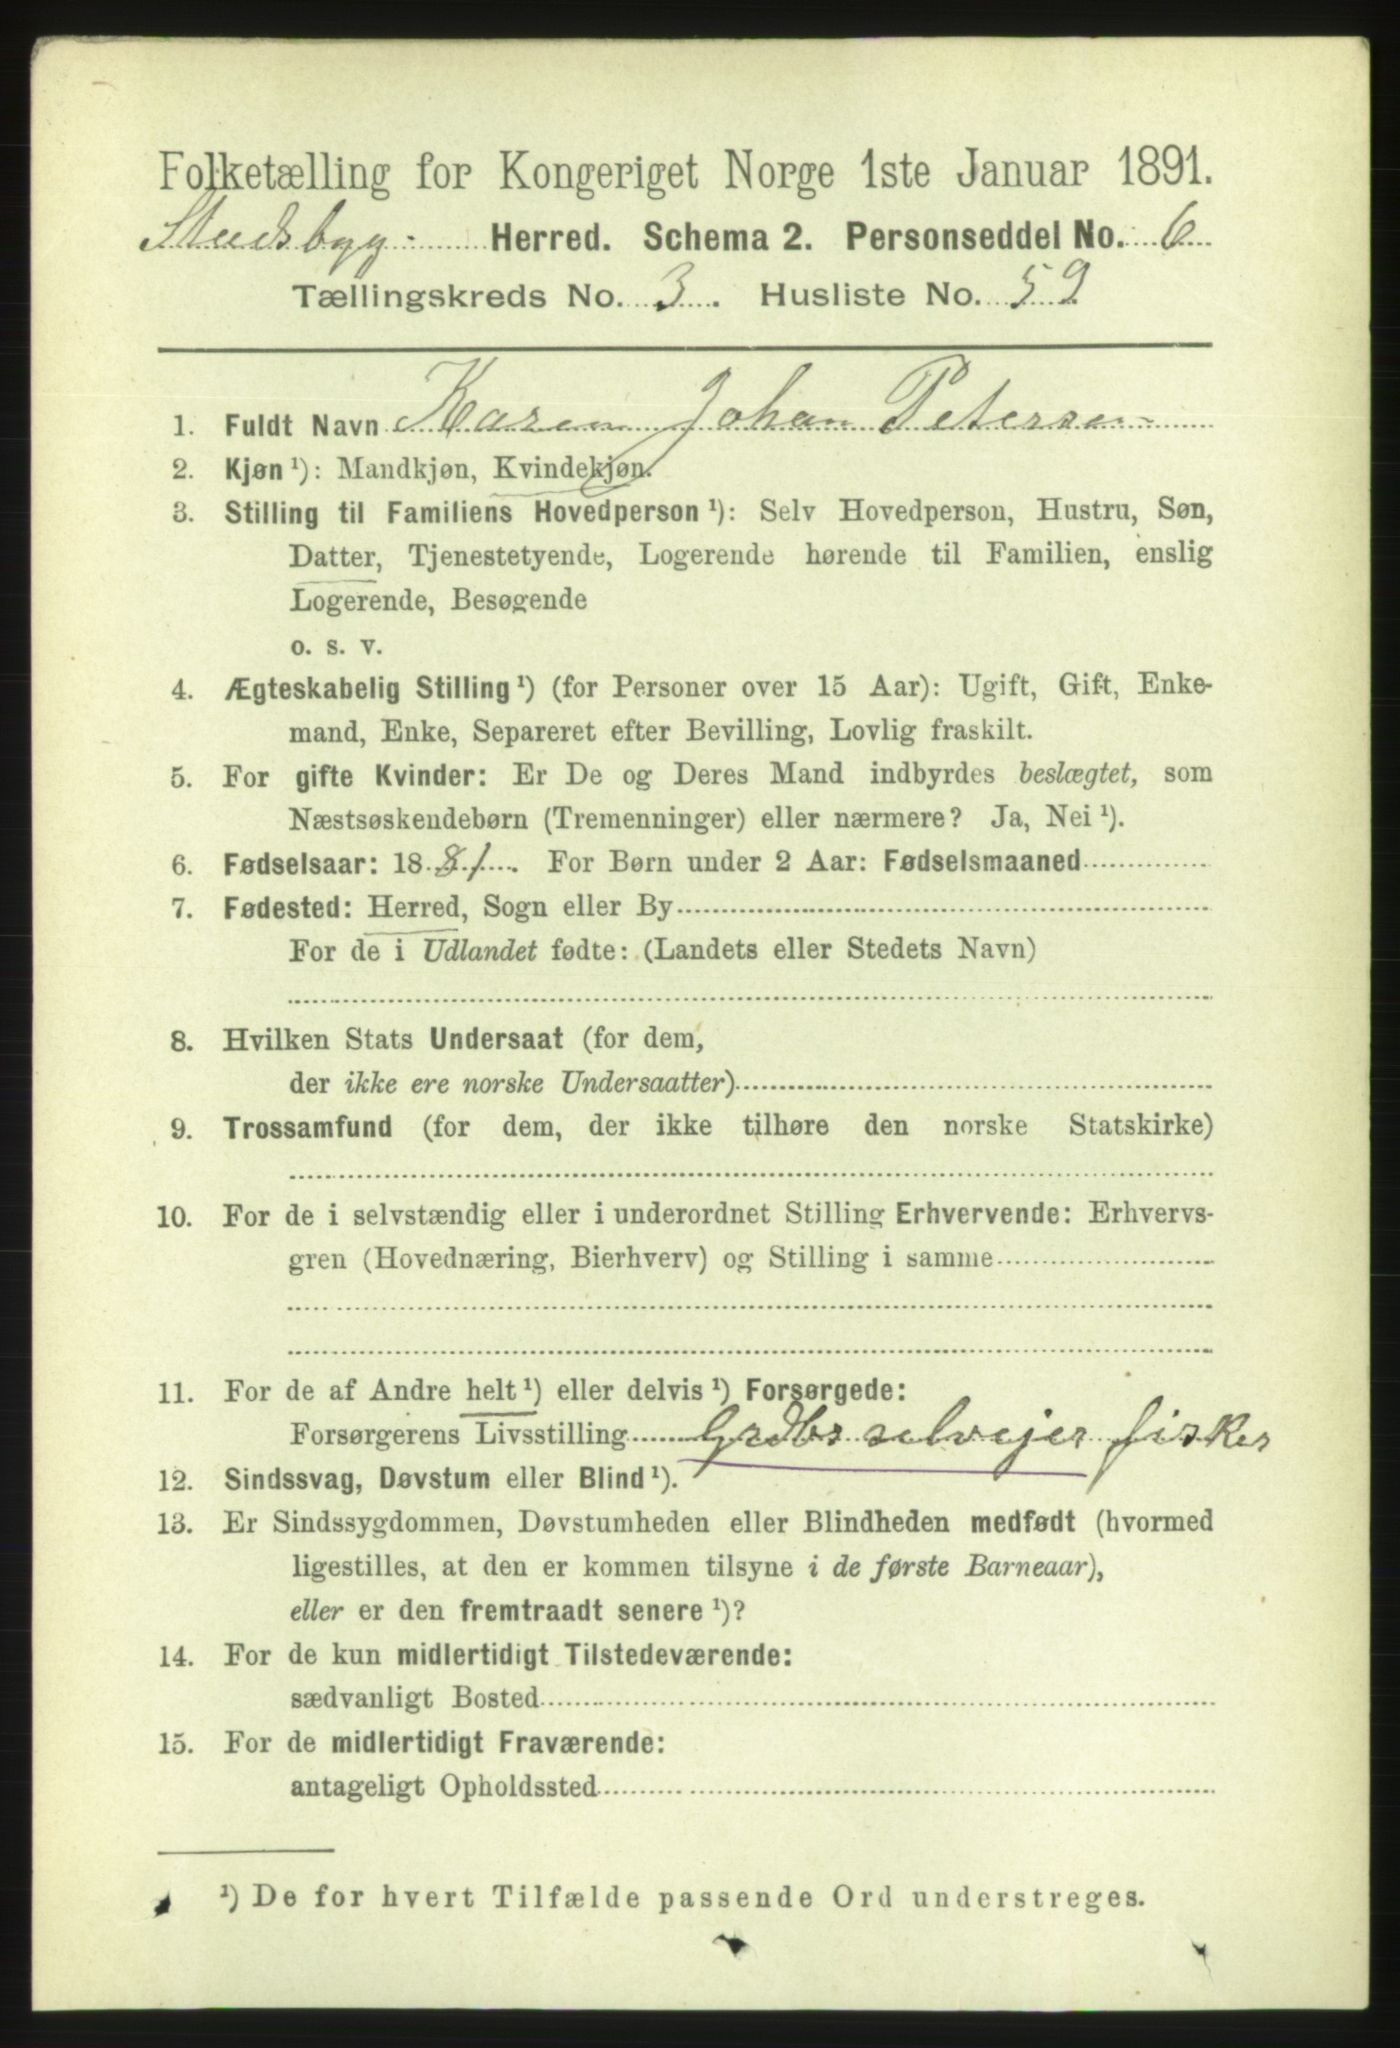 Folketælling for Kongeriget Norge 1ste Januar 1891.
Stadsbygd Herred. Schema 2. Personseddel No. 6
Tællingskreds No. 3. Husliste No. 59
1. Fuldt Navn Karen Johan Petersen
2. Kjøn ¹): Mandkjøn, Kvindekjøn.
3. Stilling til Familiens Hovedperson ¹): Selv Hovedperson, Hustru, Søn,
Datter, Tjenestetyende, Logerende hørende til Familien, enslig
Logerende, Besøgende
o. s. v.
4. Ægteskabelig Stilling ¹) (for Personer over 15 Aar): Ugift, Gift, Enke-
mand, Enke, Separeret efter Bevilling, Lovlig fraskilt.
5. For gifte Kvinder: Er De og Deres Mand indbyrdes beslægtet, som
Næstsøskendebørn (Tremenninger) eller nærmere? Ja, Nei ¹).
6. Fødselsaar: 1881. For Børn under 2 Aar: Fødselsmaaned
7. Fødested: Herred, Sogn eller By
For de i Udlandet fødte: (Landets eller Stedets Navn)
8. Hvilken Stats Undersaat (for dem,
der ikke ere norske Undersaatter)
9. Trossamfund (for dem, der ikke tilhøre den norske Statskirke)
10. For de i selvstændig eller i underordnet Stilling Erhvervende: Erhvervs-
gren (Hovednæring, Bierhverv) og Stilling i samme
11. For de af Andre helt ¹) eller delvis ¹) Forsørgede:
Forsørgerens Livsstilling Grdbr selvejer fisker
12. Sindssvag, Døvstum eller Blind ¹).
13. Er Sindssygdommen, Døvstumheden eller Blindheden medfødt (hvormed
ligestilles, at den er kommen tilsyne i de første Barneaar),
eller er den fremtraadt senere ¹)?
14. For de kun midlertidigt Tilstedeværende:
sædvanligt Bosted
15. For de midlertidigt Fraværende:
antageligt Opholdssted
¹) De for hvert Tilfælde passende Ord understreges.